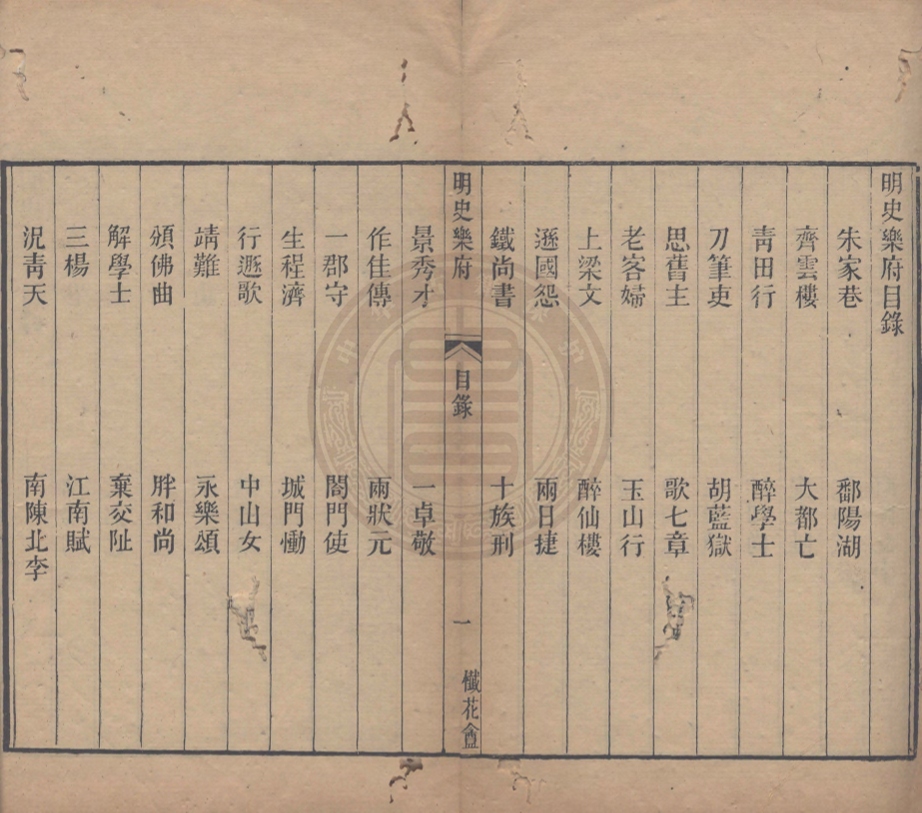 明史樂府目錄
朱家巷　鄱陽湖
齊雲樓　大都亡
靑田行　醉學士
刀筆吏　胡藍獄
思舊主　歌七章
老客婦　玉山行
上梁文　醉仙樓
遜國怨　兩日捷
鐵尚書　十族刑
明史樂府　目錄　一　懺花盦
景秀才　一卓敬
作佳傳　兩狀元
一郡守　閤門使
生程濟　城門慟
行遯歌　中山女
靖難　永樂頌
頌佛曲　胖和尚
解學士　棄交阯
三楊　江南賦
況靑天　南陳北李